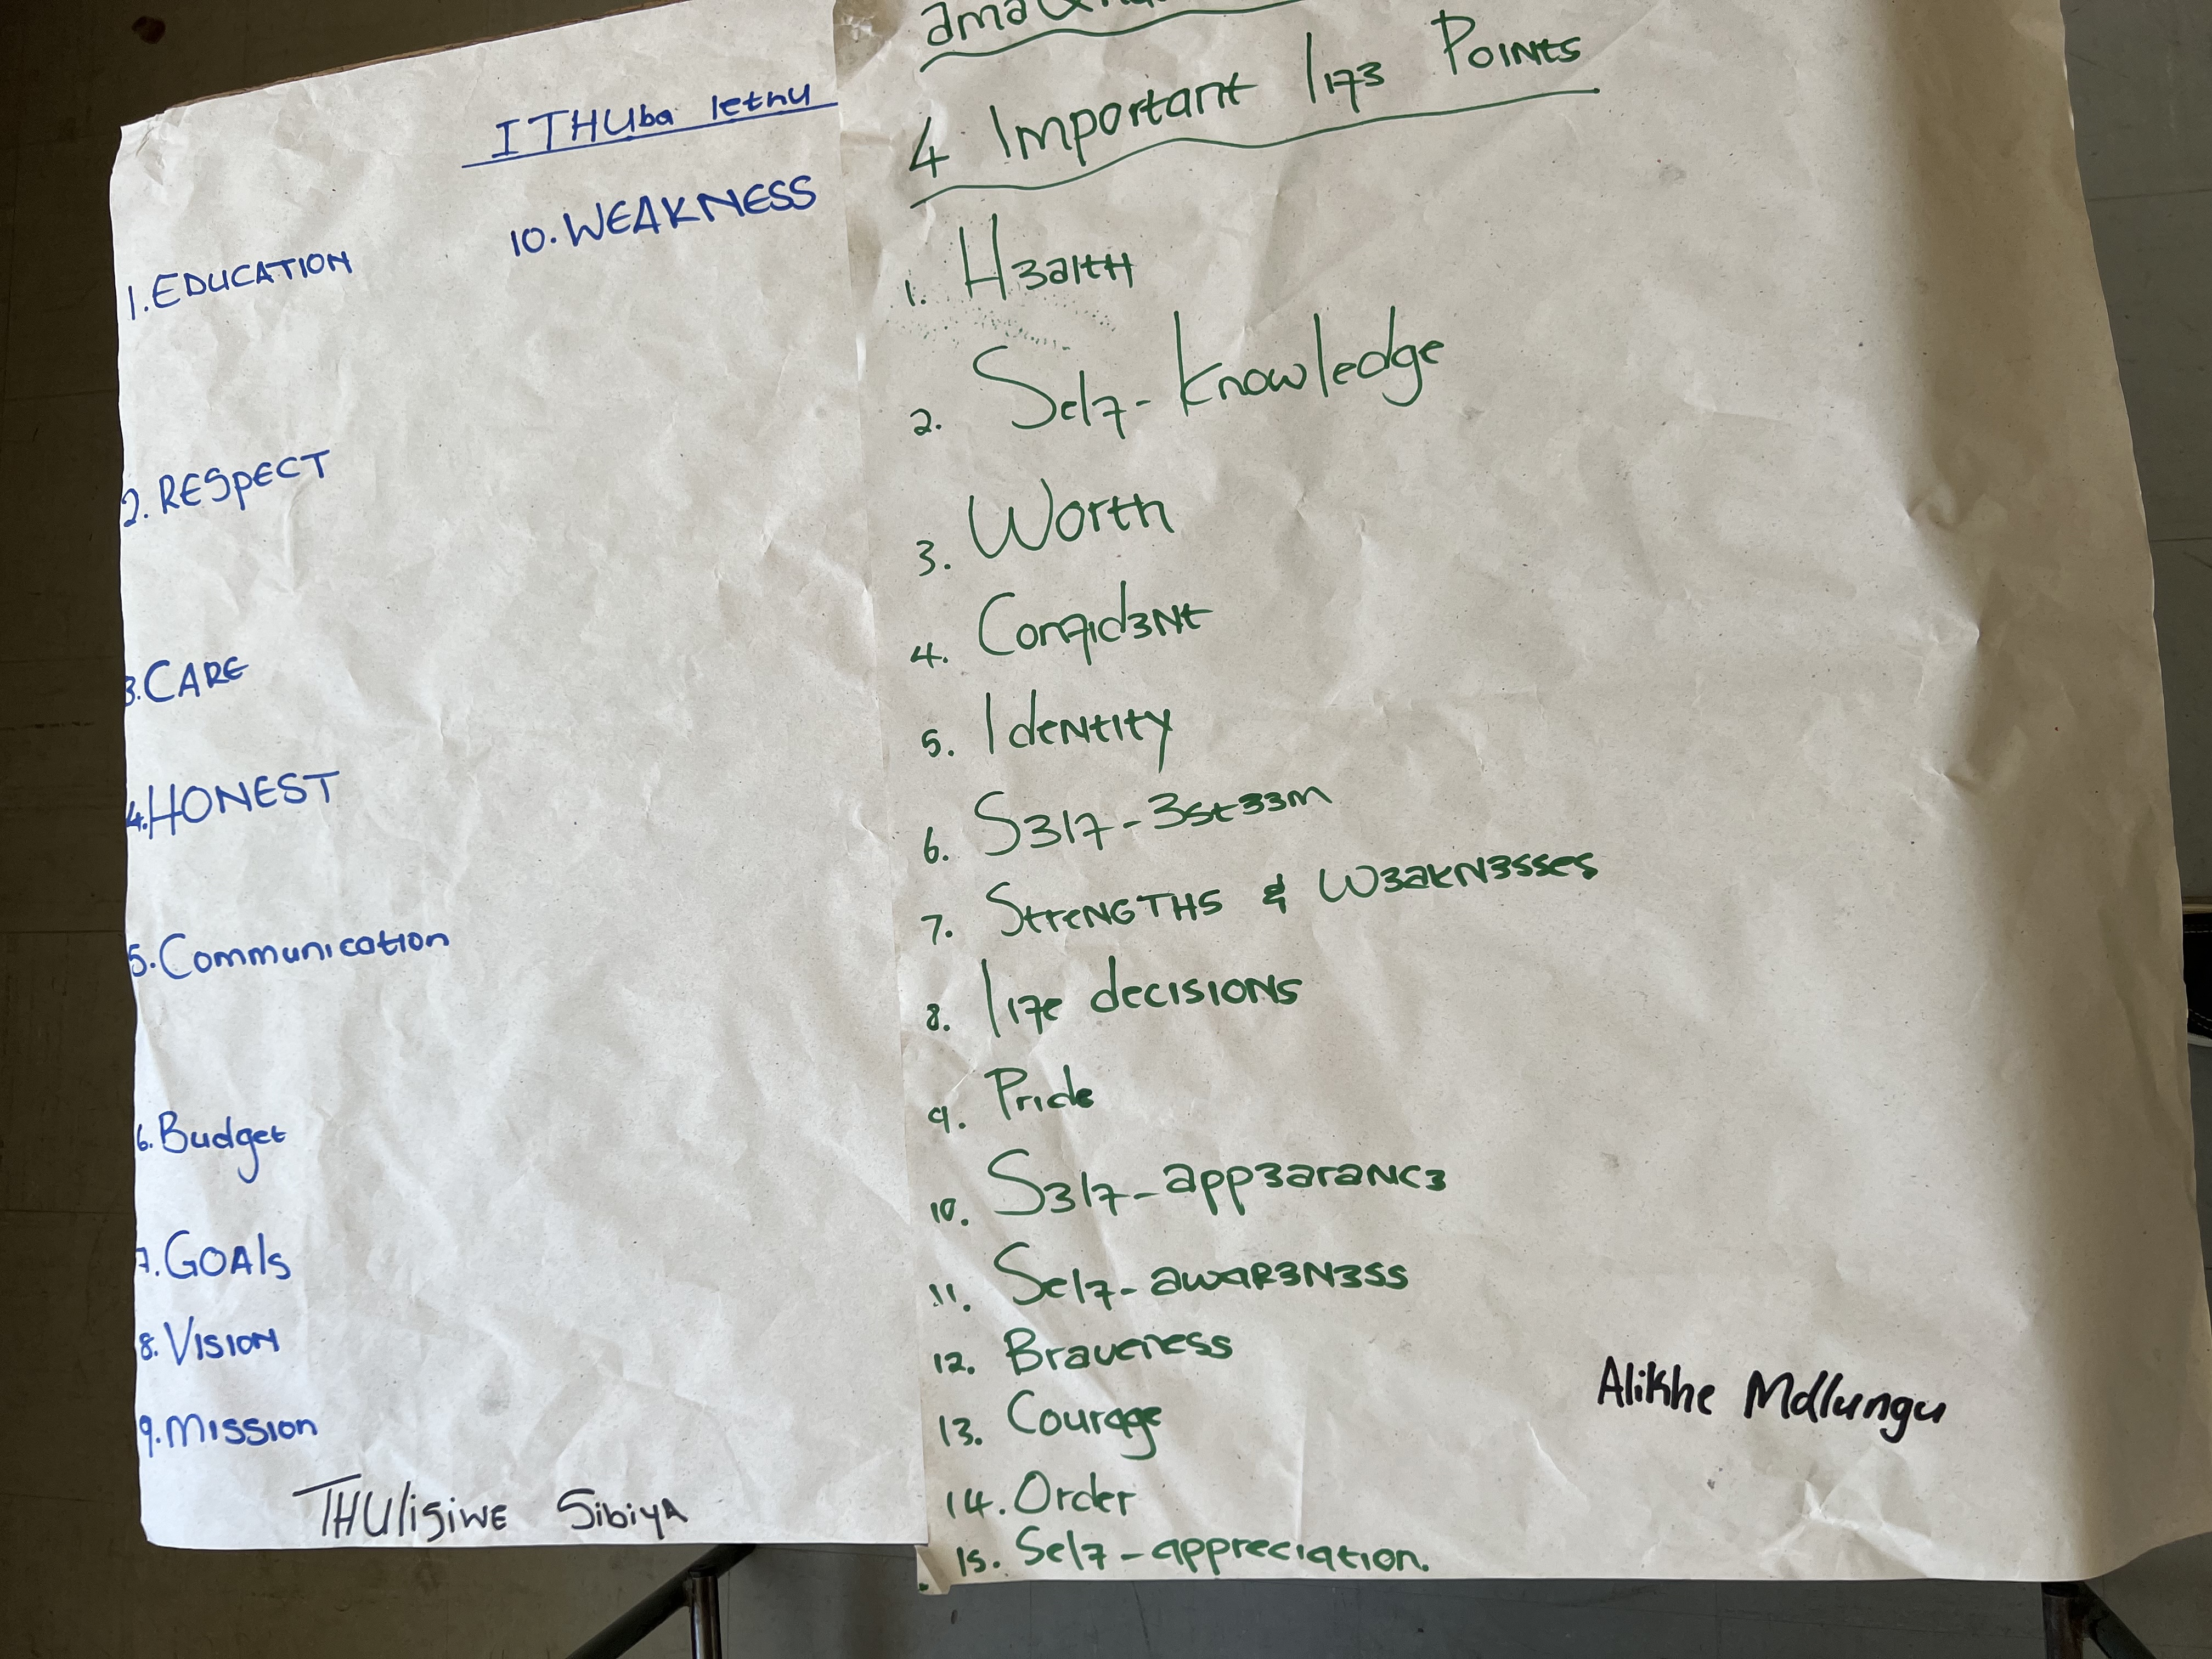 ITHUba lethu
10. WEAKNESS
1. EDUCATION
2. RESPECT
3. CARE
4. HONEST
5. Communication
6. Budget
7. GOAls
8. VISION
9. MISSION
THUlisiwE Sibiya
4 Important life Points
1. Health
2. Self-knowledge
3. Worth
4. Confident
5. Identity
6. Self-Esteem
7. StreNGTHS & WeakNesses
8. life decisions
9. Pride
10. Self-appearance
11. Self-awareNess
12. Braveness
13. Courage
14. Order
15. Self-appreciation.
Alikhe Mdlungu